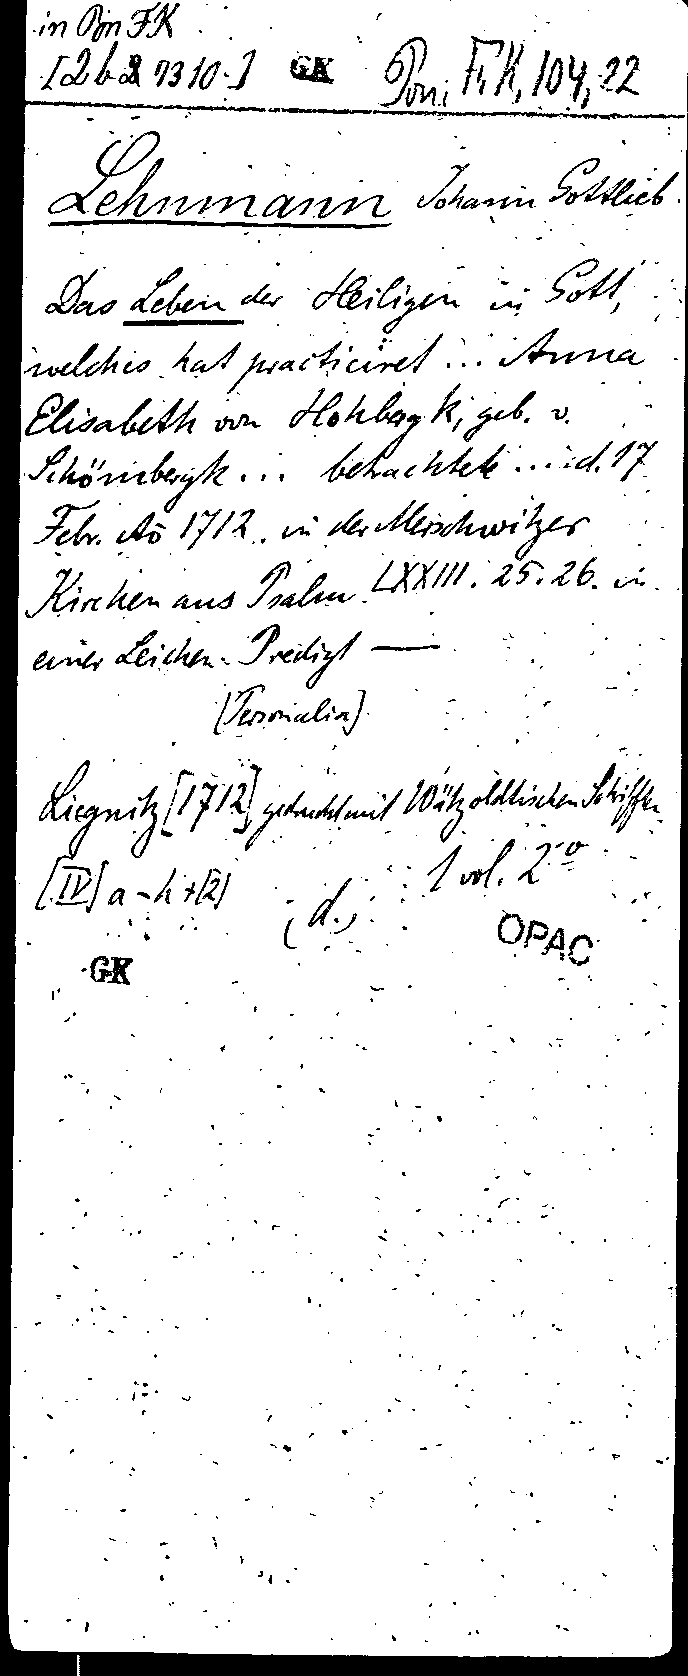 in Pon FK
[2 b 2 7310.] GK Pon. Fr. K, 104, 22
Lehnmann Johann Gottlieb.
Das Leben der Heiligen in Gott,
welches hat practiciret ... Anna
Elisabeth von Hohbergk, geb. v.
Schönbergk ... betrachtete ... d. 17
Febr. Aō 1712. in der Merschwitzer
Kirchen aus Psalm LXXIII. 25. 26. in
einer Leichen-Predigt —
[Personalia]
Liegnitz [1712] gedruckt mit Wätzoldtischen Schrifften
[IV] a-h + [2] 1 vol. 2°
(d.) OPAC
GK